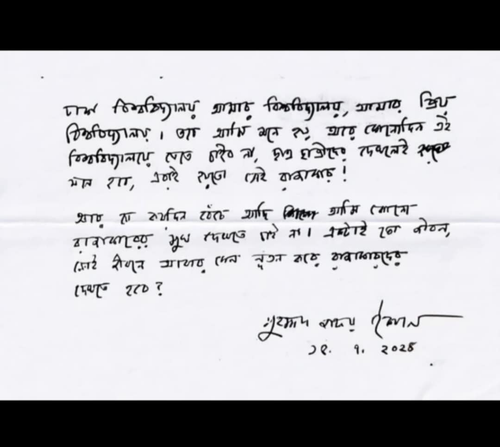 ঢাকা বিশ্ববিদ্যালয় আমার বিশ্ববিদ্যালয়, আমার প্রিয়
বিশ্ববিদ্যালয়। তবে আমি মনে হয় আর কোনোদিন এই
বিশ্ববিদ্যালয়ে যেতে চাইব না, ছাত্র ছাত্রীদের দেখলেই
মনে হবে, এরাই হয়তো সেই রাজাকার!
আর যে কয়দিন বেঁচে আছি আমি কোনো
রাজাকারের মুখ দেখতে চাই না। একটাই তো জীবন,
সেই জীবনে আবার কেন নূতন করে রাজাকারদের
দেখতে হবে?
মুহম্মদ জাফর ইকবাল
১৫. ৭. ২০২৪